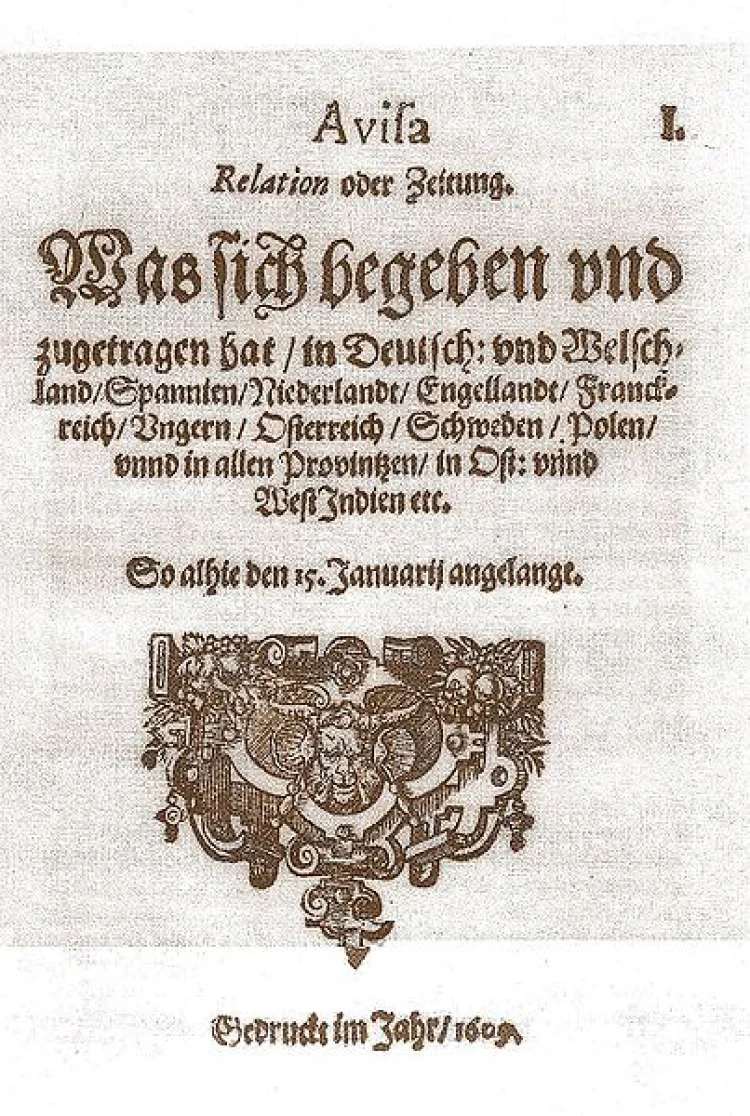 Aviſa
I.
Relation oder Zeitung.
Was ſich begeben vnd
zugetragen hat / in Deutſch: vnd Welſch⸗
land/Spannien/Niederlandt/ Engellandt/ Franck⸗
reich/ Vngern / Oſterreich / Schweden / Polen/
vnnd in allen Provintzen/ in Oſt: vnnd
WeſtIndien etc.
So alhie den 15. Januarij angelangt.
Gedruckt im Jahr/ 1609.